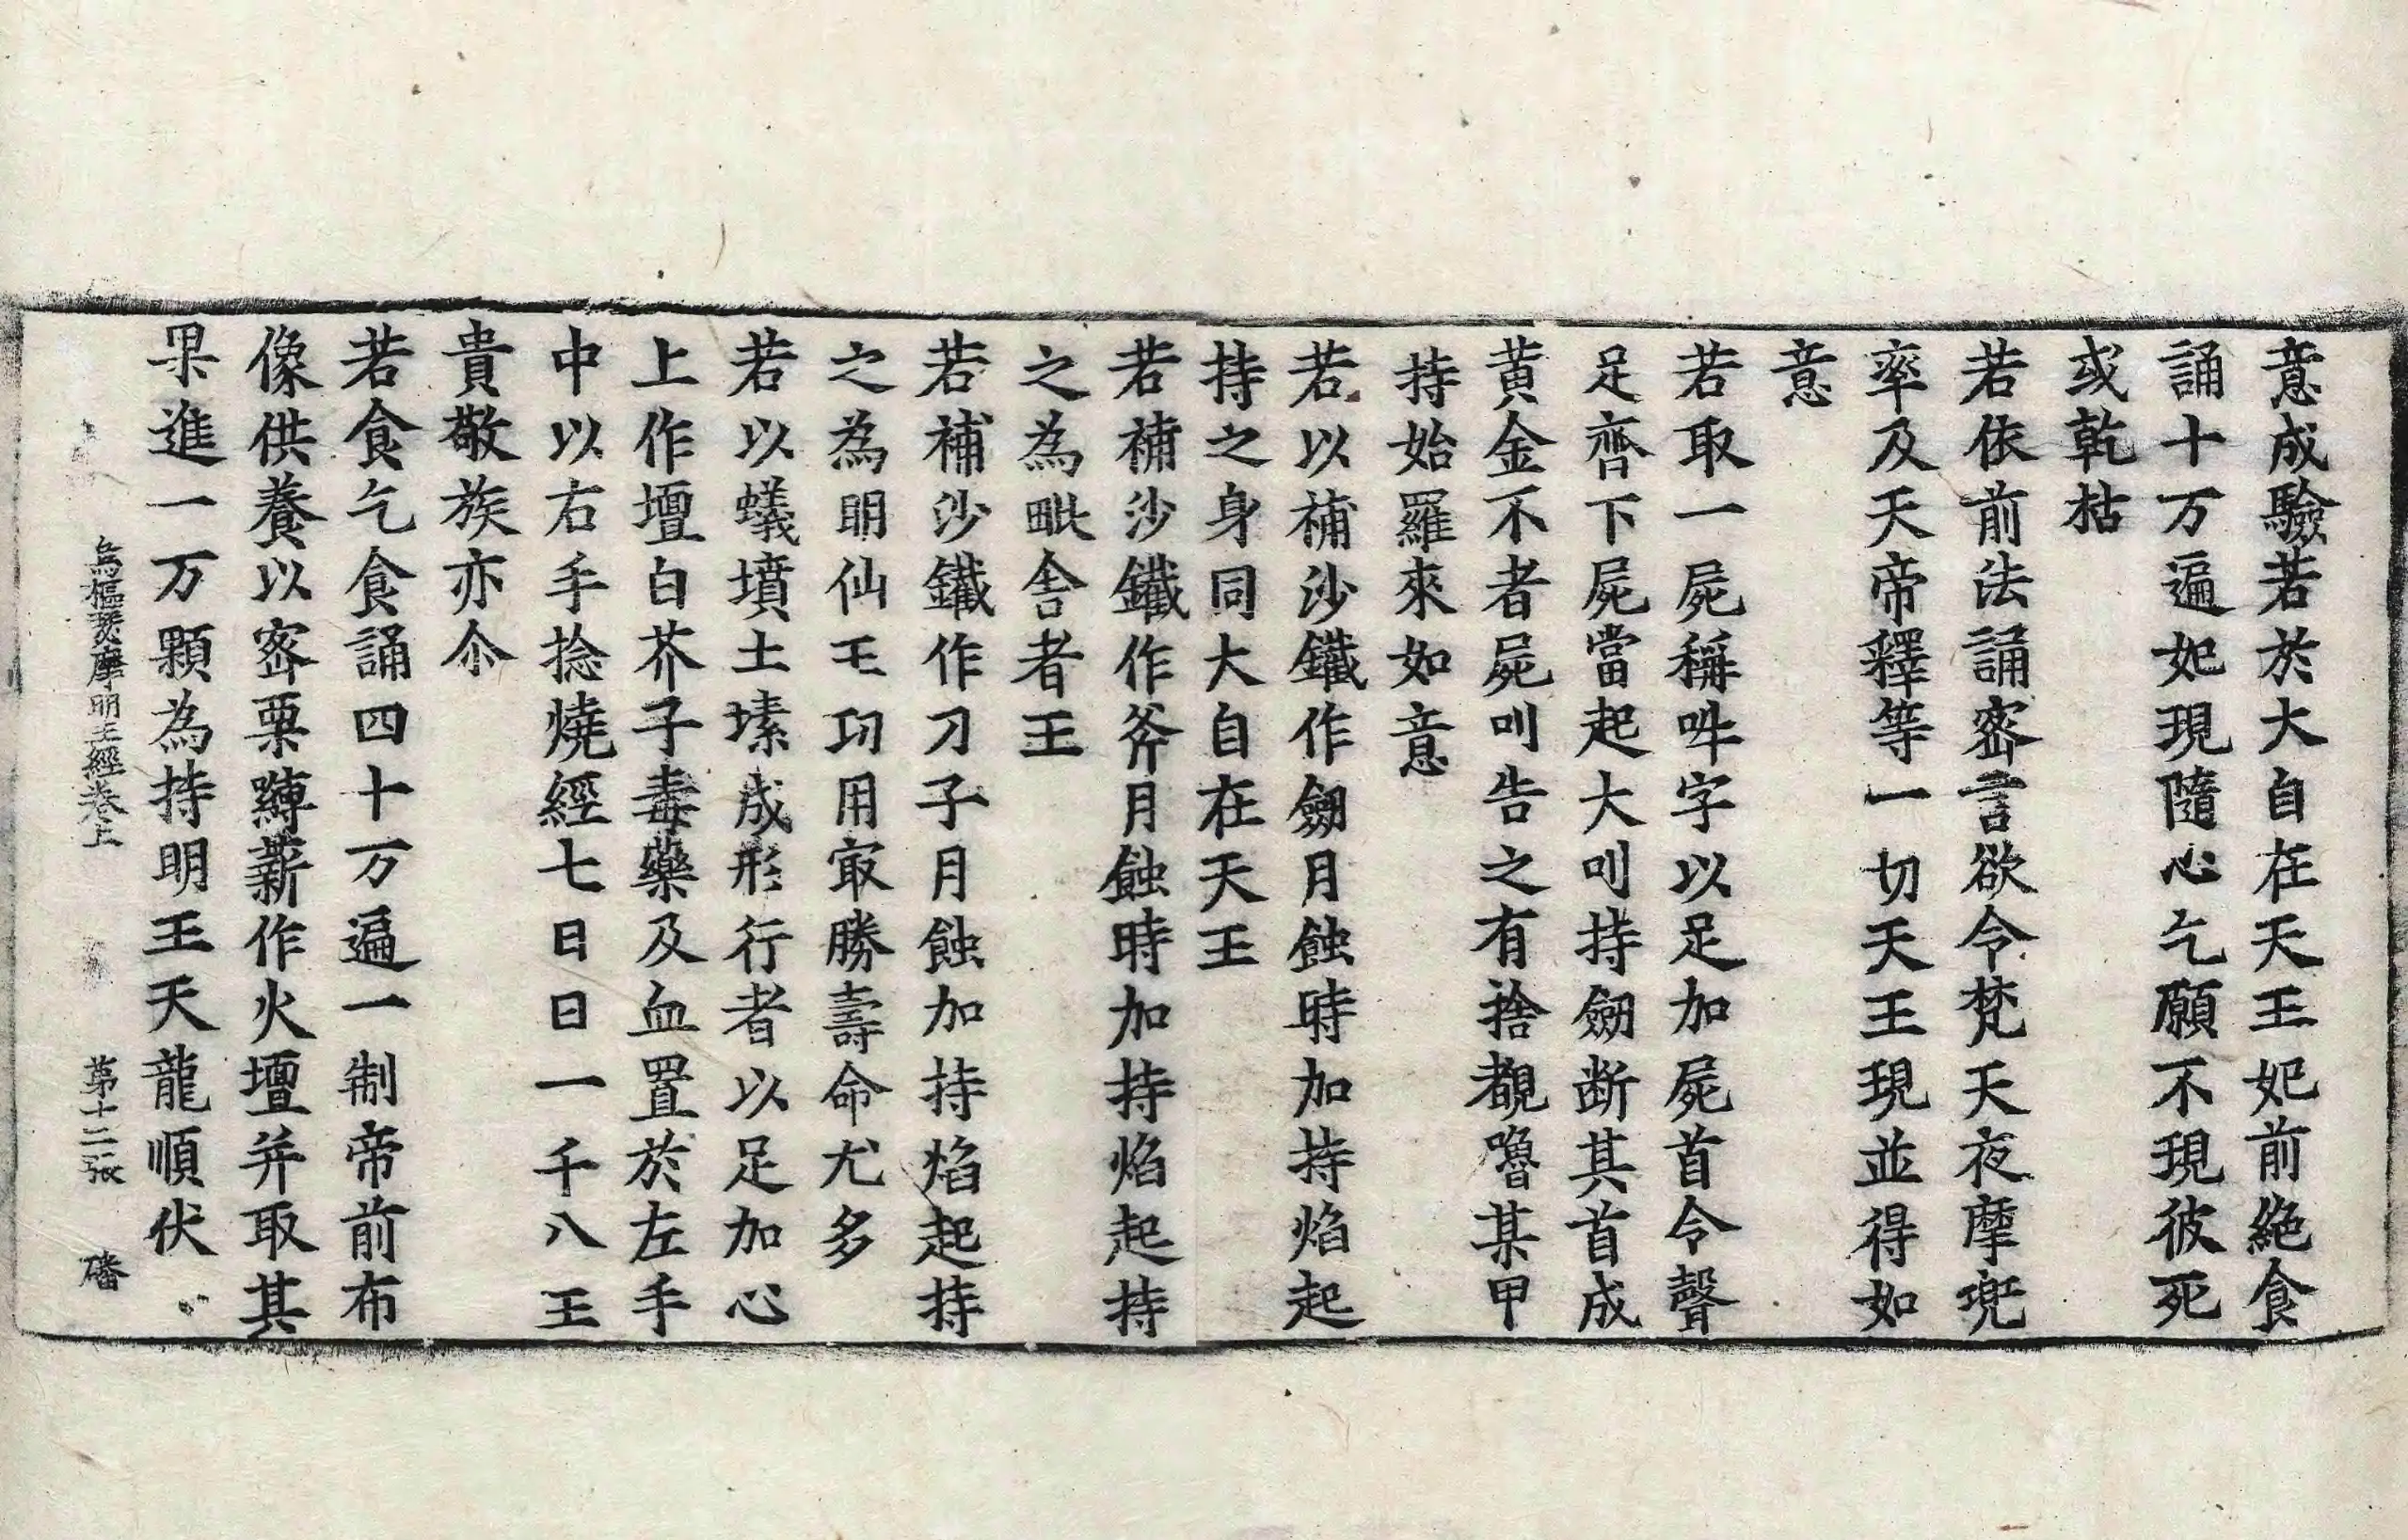 意成驗若於大自在天王妃前絶食
誦十万遍妃現隨心乞願不現彼死
或乾枯
若依前法誦宻言欲令梵天夜摩兜
率及天帝釋等一切天王現並得如
意
若取一屍稱吽字以足加屍首令聲
足齊下屍當起大叫持劒断其首成
黄金不者屍叫告之有捨覩嚕某甲
持始羅來如意
若以補沙鐵作劒月蝕時加持焰起
持之身同大自在天王
若補沙鐵作斧月蝕時加持焰起持
之為毗舍者王
若補沙鐵作刀子月蝕加持焰起持
之為明仙王功用㝡勝壽命尤多
若以蟻墳土塐成形行者以足加心
上作壇白芥子毒藥及血置於左手
中以右手捻燒經七日日一千八王
貴敬族亦尒
若食乞食誦四十万遍一制帝前布
像供養以宻栗䌸薪作火壇并取其
果進一万顆為持明王天龍順伏
烏樞瑟摩明王經卷上 第十二張 磻